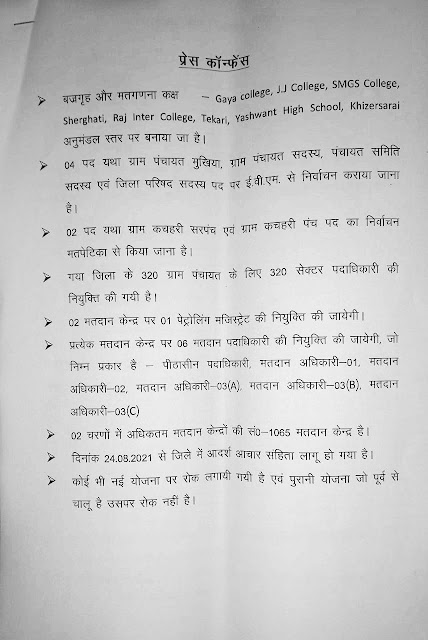 प्रेस कॉन्फ्रेंस
➤ बजगृह और मतगणना कक्ष – Gaya college, J.J College, SMGS College,
Sherghati, Raj Inter College, Tekari, Yashwant High School, Khizersarai
अनुमंडल स्तर पर बनाया जा है।
➤ 04 पद यथा ग्राम पंचायत मुखिया, ग्राम पंचायत सदस्य, पंचायत समिति
सदस्य एवं जिला परिषद सदस्य पद पर ई.वी.एम. से निर्वाचन कराया जाना
है।
➤ 02 पद यथा ग्राम कचहरी सरपंच एवं ग्राम कचहरी पंच पद का निर्वाचन
मतपेटिका से किया जाना है।
➤ गया जिला के 320 ग्राम पंचायत के लिए 320 सेक्टर पदाधिकारी की
नियुक्ति की गयी है।
➤ 02 मतदान केन्द्र पर 01 पेट्रोलिंग मजिस्ट्रेट की नियुक्ति की जायेगी।
➤ प्रत्येक मतदान केन्द्र पर 06 मतदान पदाधिकारी की नियुक्ति की जायेगी, जो
निम्न प्रकार है – पीठासीन पदाधिकारी, मतदान अधिकारी–01, मतदान
अधिकारी–02, मतदान अधिकारी–03(A), मतदान अधिकारी–03(B), मतदान
अधिकारी–03(C)
➤ 02 चरणों में अधिकतम मतदान केन्द्रों की सं0–1065 मतदान केन्द्र है।
➤ दिनांक 24.08.2021 से जिले में आदर्श आचार संहिता लागू हो गया है।
➤ कोई भी नई योजना पर रोक लगायी गयी है एवं पुरानी योजना जो पूर्व से
चालू है उसपर रोक नहीं है।